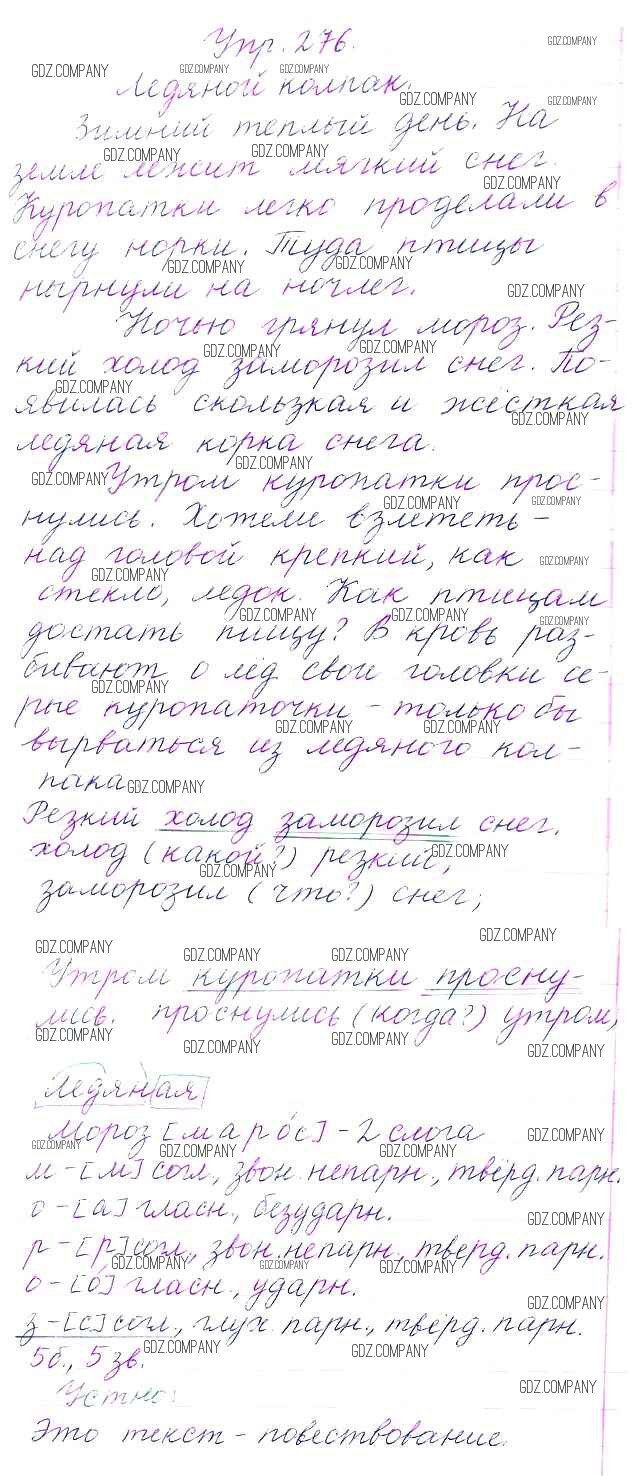 Упр. 276.
Ледяной колпак.
Зимний теплый день. На
земле лежит мягкий снег.
Куропатки легко проделали в
снегу норки. Туда птицы
нырнули на ночлег.
Ночью грянул мороз. Рез-
кий холод заморозил снег. По-
явилась скользкая и жёсткая
ледяная корка снега.
Утром куропатки прос-
нулись. Хотели взлететь -
над головой крепкий, как
стекло, ледок. Как птицам
достать пищу? В кровь раз-
бивают о лёд свои головки се-
рые куропаточки - только бы
вырваться из ледяного кол-
пака
Резкий холод заморозил снег.
холод (какой?) резкий,
заморозил (что?) снег;
Утром куропатки просну-
лись. проснулись (когда?) утром,
Ледяная
Мороз [марóс] - 2 слога
м - [м] согл., звон. непарн., твёрд. парн.
о - [а] гласн., безударн.
р - [р] согл., звон. непарн., тверд. парн.
о - [ó] гласн., ударн.
з - [с] согл., глух. парн., твёрд. парн.
5б., 5 зв.
Устно:
Это текст - повествование.
GDZ.COMPANY